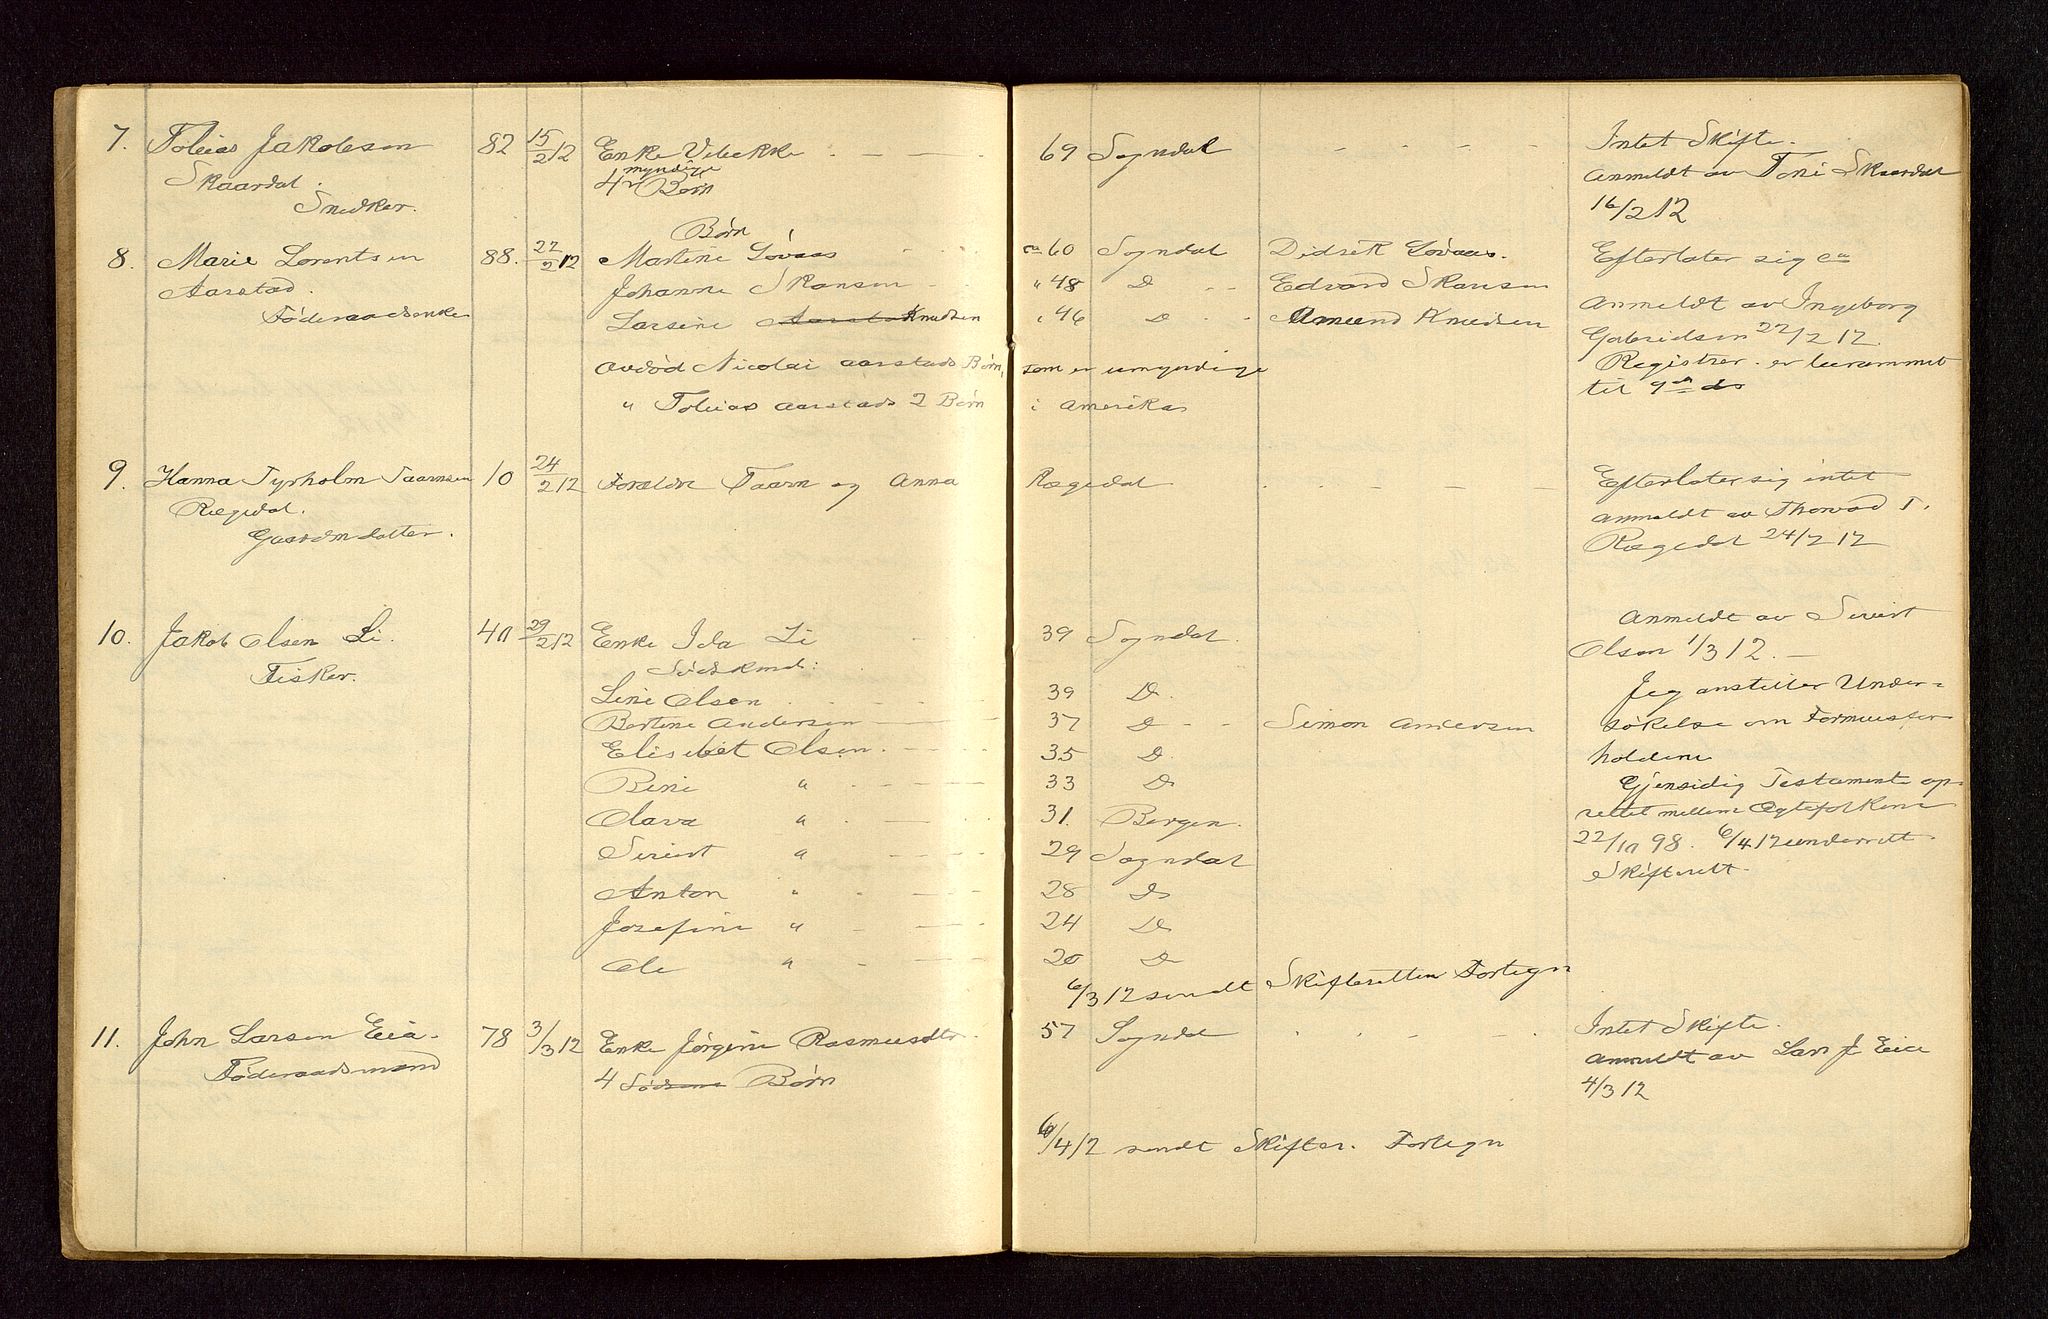 7. Tobias Jakobsen 82 15/2 12 Enke Vibekke 69 Sogndal Intet Skifte.
Skaardal. 4 myndige Børn anmeldt av Toni Skaardal
Snedker. 16/2 12
Børn
8. Marie Lorentsen 88. 22/2 12 Martine Løvaas ca 60 Sogndal Didrik Løvaas. Efterlater sig ca
Aarstad. Johanne Skansen " 48 D Edvard Skansen anmeldt av Ingeborg
Føderaadsenke Larsine Aarstad Knudsen " 46 D Amund Knudsen Gabrielsen 22/2 12.
avdød Nicolai Aarstads Børn, som er umyndige Registrer. er berammet
" Tobias Aarstads 2 Børn i Amerika til 9de ds
9. Hanna Tyrholm Taarnsen 10 24/2 12 Forældre Taarn og Anna Rægedal Efterlater sig intet
Rægedal. anmeldt av Thorvad T.
Gaardmdatter. Rægedal 24/2 12
10. Jakob Olsen Li. 40 29/2 12 Enke Ida Li 39 Sogndal. Anmeldt av Sivert
Fisker. Sødskend: Olsen 1/3 12.
Line Olsen 39 D. Jeg anstiller Under-
Bertine Andersen 37 D Simon Andersen søkelse om Formuesfor
Elisebet Olsen. 35 D. holdene
Rine " 33 D Gjensidig Testamente op-
Olava " 31. Bergen. rettet mellem Ægtefolkene
Sivert " 29 Sogndal 22/10 98. 6/4 12 underrett.
Anton " 28 D Skifterett.
Josefine " 24 D
Ole " 20 D
6/3 12 sendt Skifteretten Fortegn
11. John Larsen Eia. 78 3/3 12 Enke Jørgine Rasmusdtr. 57 Sogndal Intet Skifte.
Føderaadsmand 4 Børn anmeldt av Lars J. Eia
4/3 12
6/4 12 sendt Skifter. Fortegn